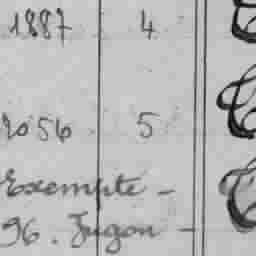 1887 4
2056 5
Exempte -
96. Jugon -